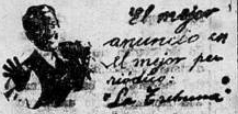 El mejor
anuncio en
el mejor pe
riodico:
"La Tribuna"